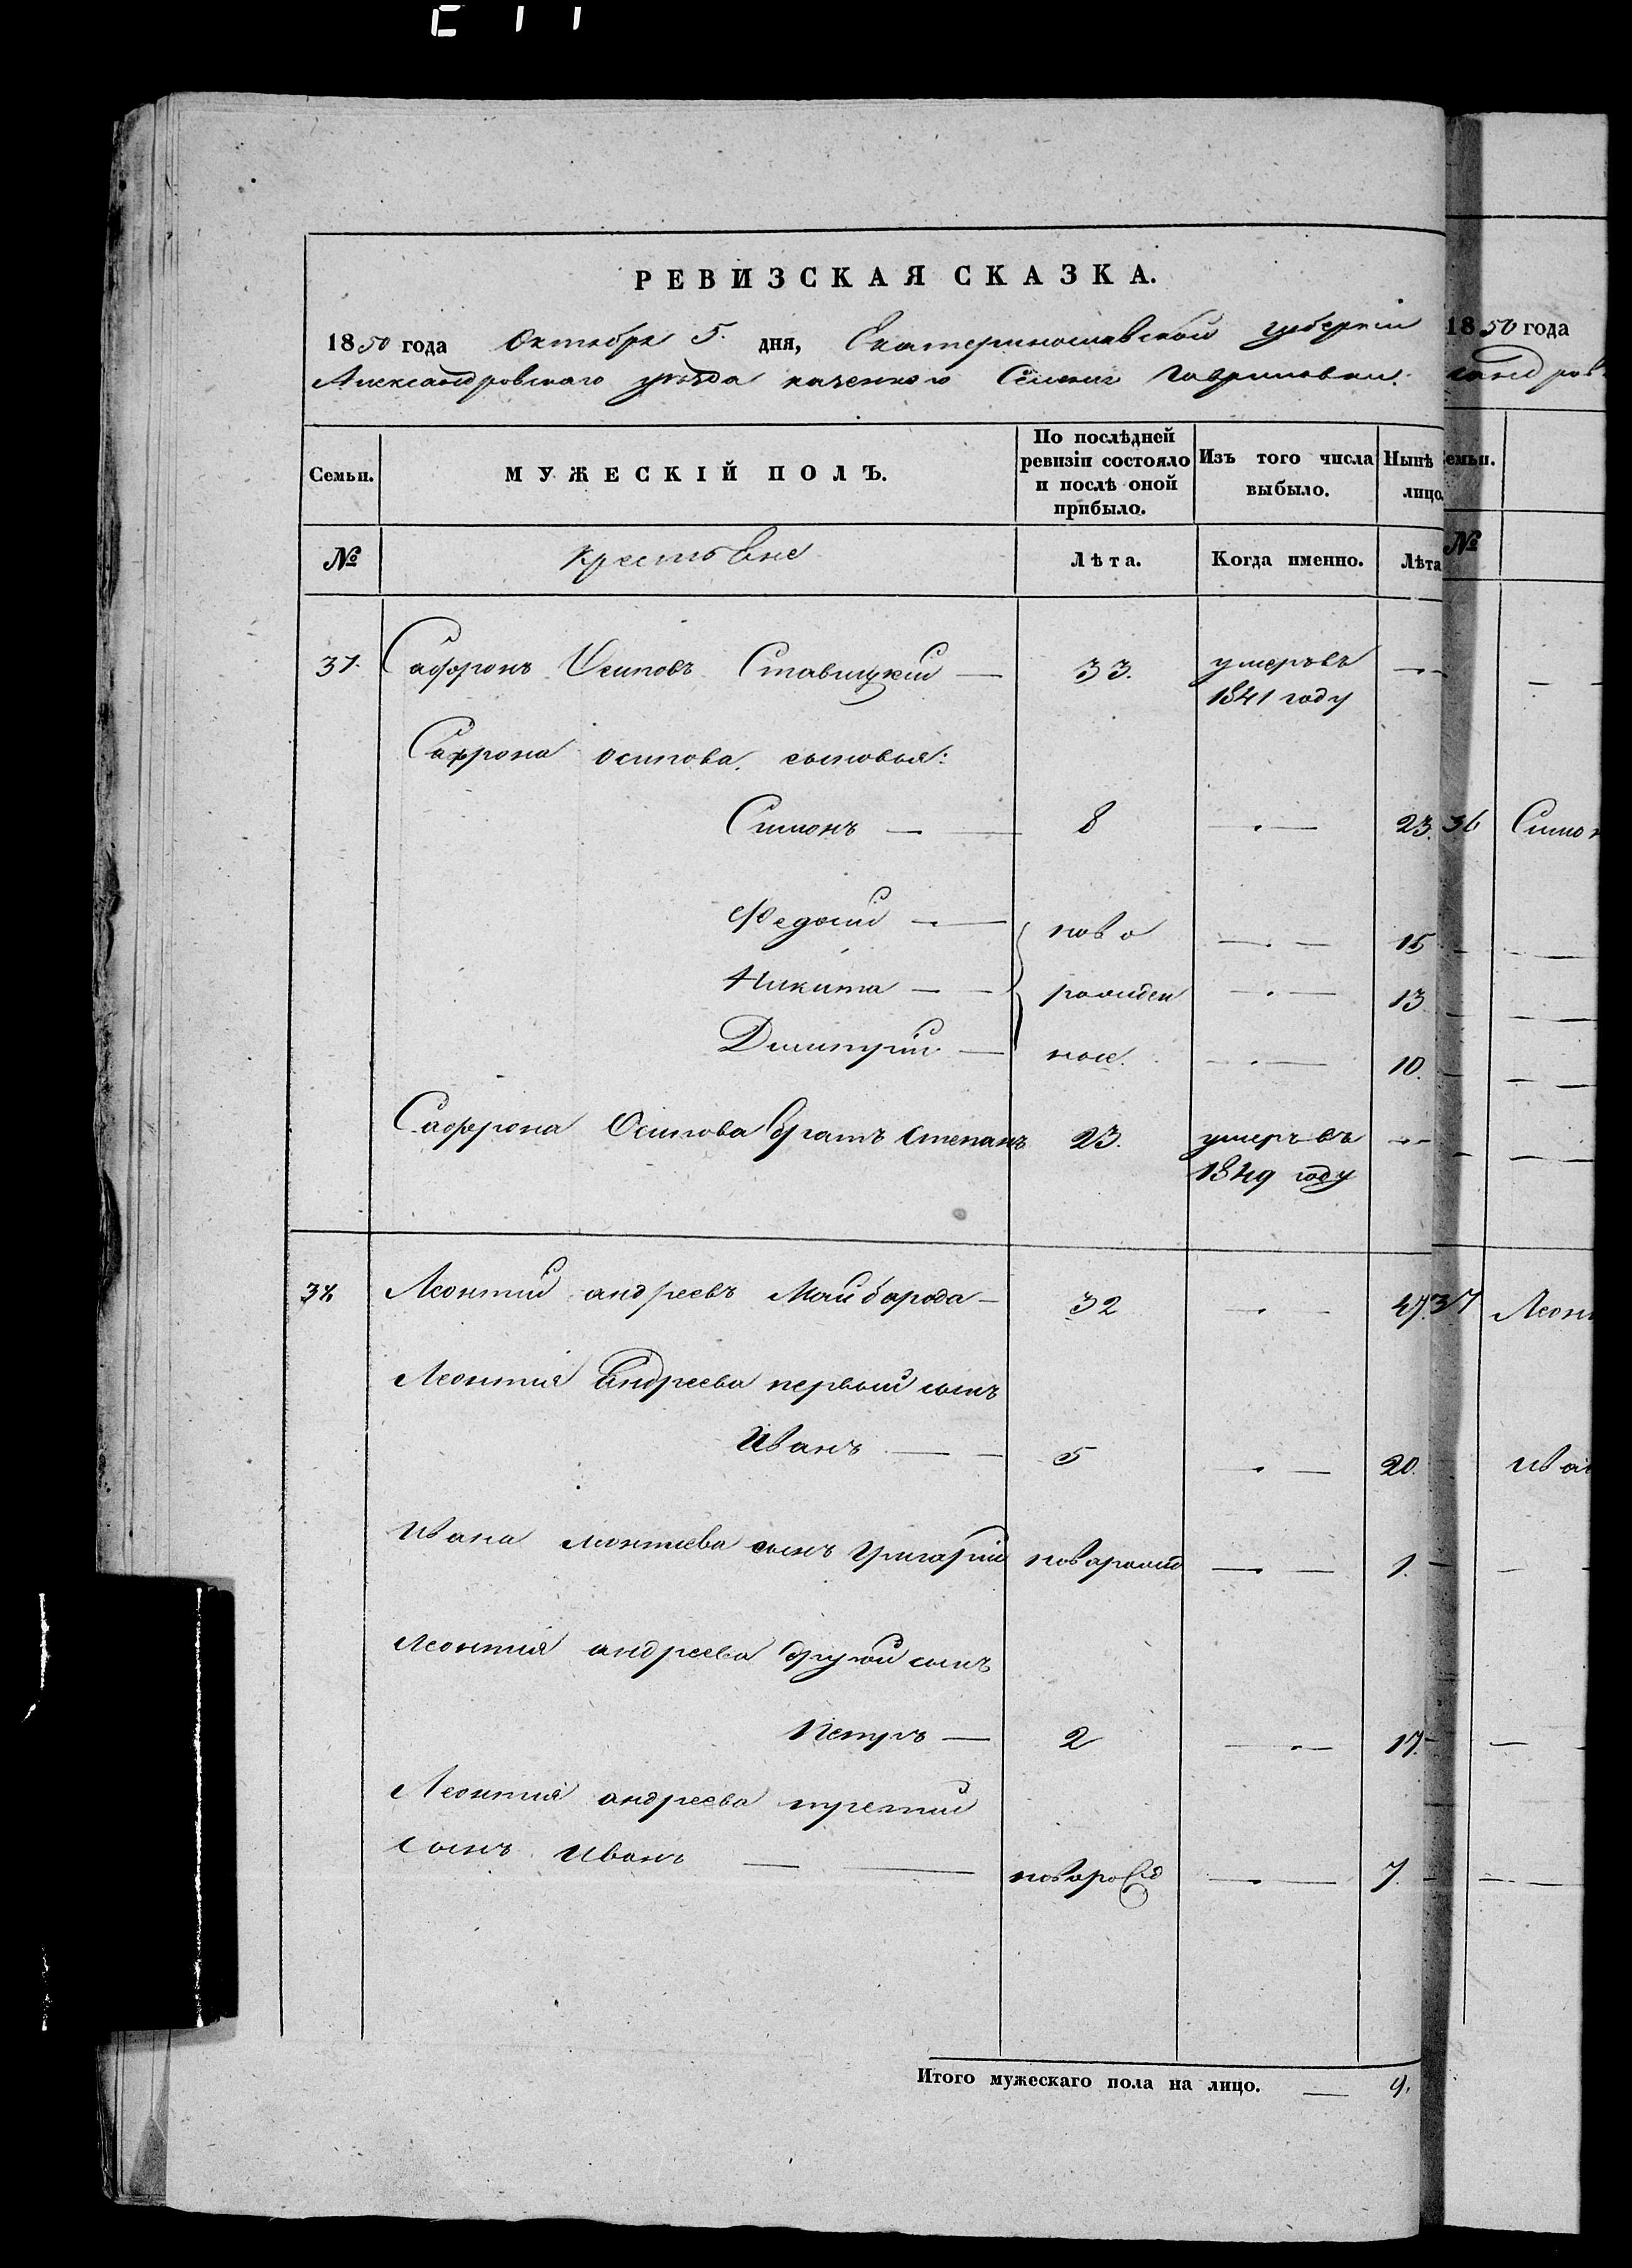 РЕВИЗСКАЯ СКАЗКА.
1850 года Октября 5. дня, Екатеринославской губерніи
Александровскаго уѣзда казеннаго Селенія Гавриловки.
Семьи. МУЖЕСКІЙ ПОЛЪ. По послѣдней ревизіи состояло и послѣ оной прибыло. Изъ того числа выбыло. Нынѣ лицо.
№ Крестьяне Лѣта. Когда именно. Лѣта
37. Сафронъ Осиповъ Ставицкій — 33. умеръ въ 1841 году —
Сафрона осипова сыновья:
Симонъ — 8 — 23.
Федосій — ново — 15
Никита — рожден — 13
Димитрій — ные. — 10.
Сафрона Осипова братъ Степанъ 23. умеръ въ 1849 году —
38 Леонтий андреевъ Майборода — 32 — 47.
Леонтия Андреева первый сынъ
Иванъ — 5 — 20.
Ивана леонтиева сынъ Григорий новорожд — 1.
Леонтия андреева другой сынъ
Петръ — 2 — 17.
Леонтия андреева третий
сынъ Иванъ — новорожд — 7.
Итого мужескаго пола на лицо. — 9.
1850 года
санд ров
емьи.
№
36 Симон
37 Леон
Ива